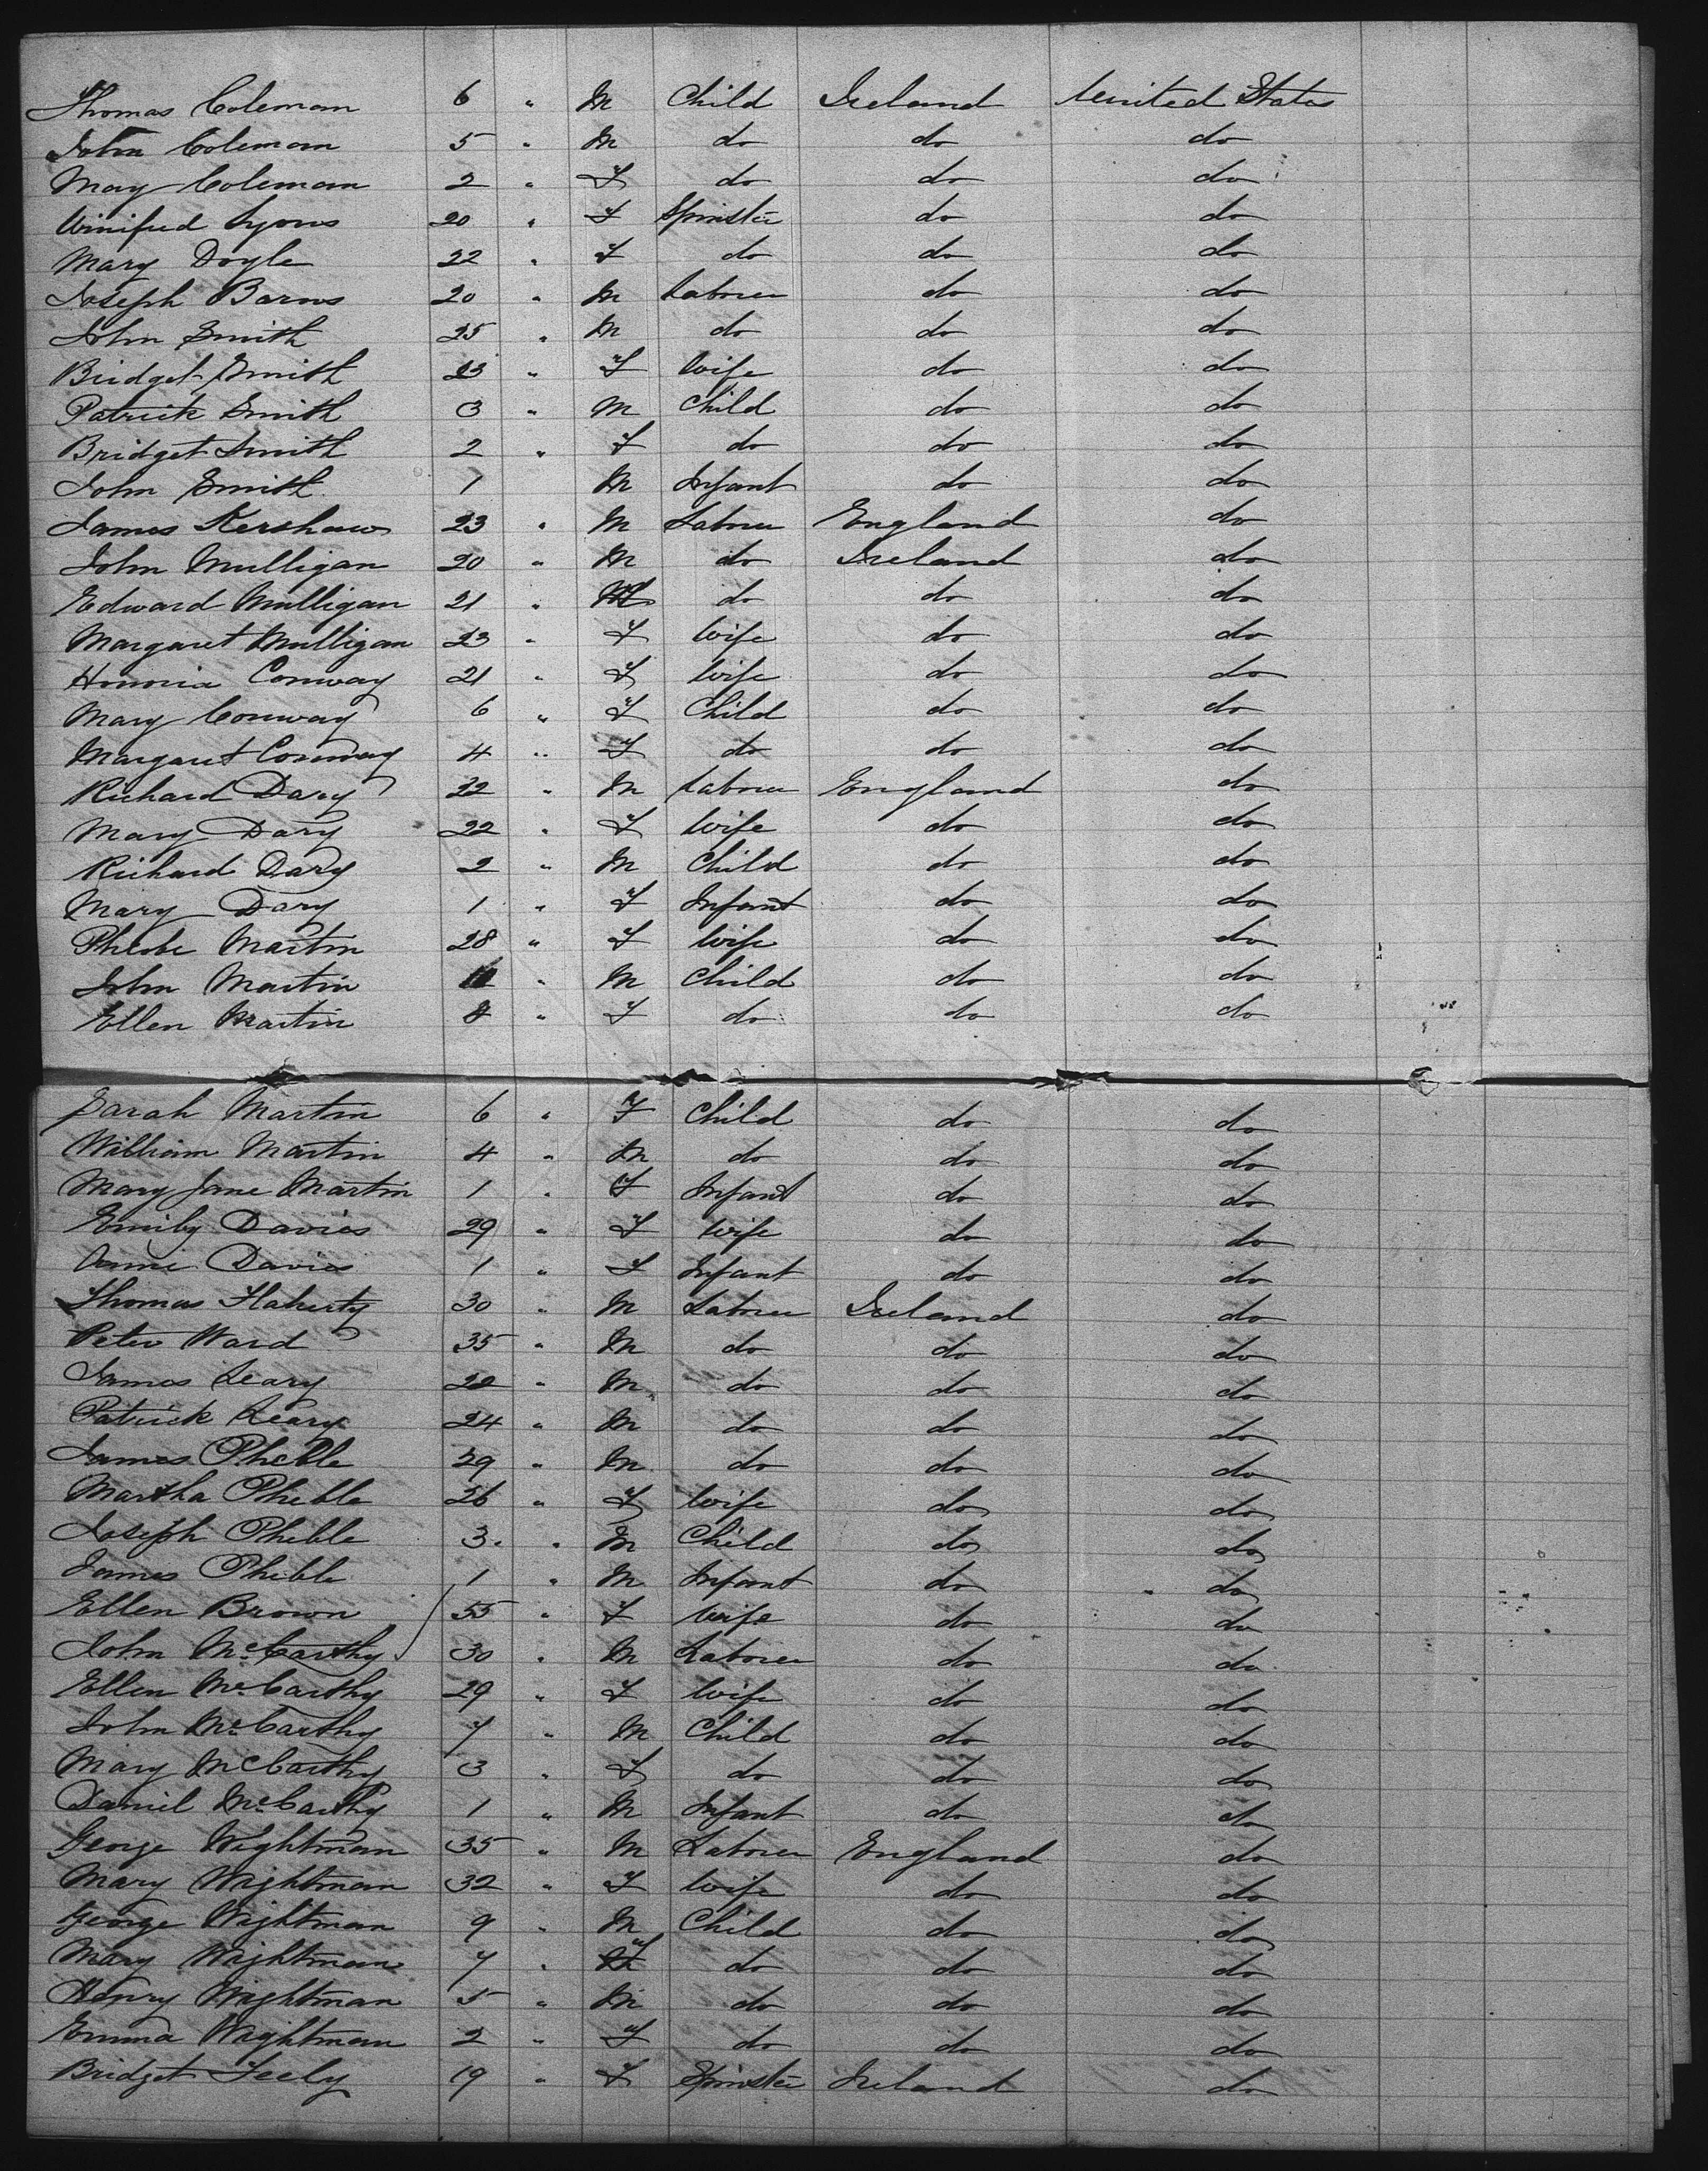 Thomas Coleman 6 " M Child Ireland United States
John Coleman 5 " M do do do
May Coleman 2 " F do do do
Winifred Lyons 20 " F Spinster do do
Mary Doyle 22 " F do do do
Joseph Barns 20 " M Laborer do do
John Smith 25 " M do do do
Bridget Smith 23 " F Wife do do
Patrick Smith 3 " M Child do do
Bridget Smith 2 " F do do do
John Smith 1 M Infant do do
James Kershaw 23 " M Laborer England do
John Mulligan 20 " M do Ireland do
Edward Mulligan 21 " M do do do
Margaret Mulligan 23 " F Wife do do
Honoria Conway 21 " F Wife do do
Mary Conway 6 " F Child do do
Margaret Conway 4 " F do do do
Richard Dary 22 " M Laborer England do
Mary Dary 22 " F Wife do do
Richard Dary 2 " M Child do do
Mary Dary 1 " F Infant do do
Phebe Martin 28 " F Wife do do
John Martin " M Child do do
Ellen Martin 8 " F do do do
Sarah Martin 6 " F Child do do
William Martin 4 " M do do do
Mary Jane Martin 1 " F Infant do do
Emily Davies 29 " F Wife do do
Annie Davies 1 " F Infant do do
Thomas Flaherty 30 " M Laborer Ireland do
Peter Ward 35 " M do do do
James Leary 22 " M do do do
Patrick Leary 24 " M do do do
James Pheble 29 " M do do do
Martha Pheble 26 " F Wife do do
Joseph Pheble 3 " M Child do do
James Pheble 1 " M Infant do do
Ellen Brown 55 " F Wife do do
John McCarthy 30 " M Laborer do do
Ellen McCarthy 29 " F Wife do do
John McCarthy 7 " M Child do do
Mary McCarthy 3 " F do do do
Daniel McCarthy 1 " M Infant do do
George Wightman 35 " M Laborer England do
Mary Wightman 32 " F Wife do do
George Wightman 9 " M Child do do
Mary Wightman 7 " F do do do
Henry Wightman 5 " M do do do
Emma Wightman 2 " F do do do
Bridget Feely 19 " F Spinster Ireland do